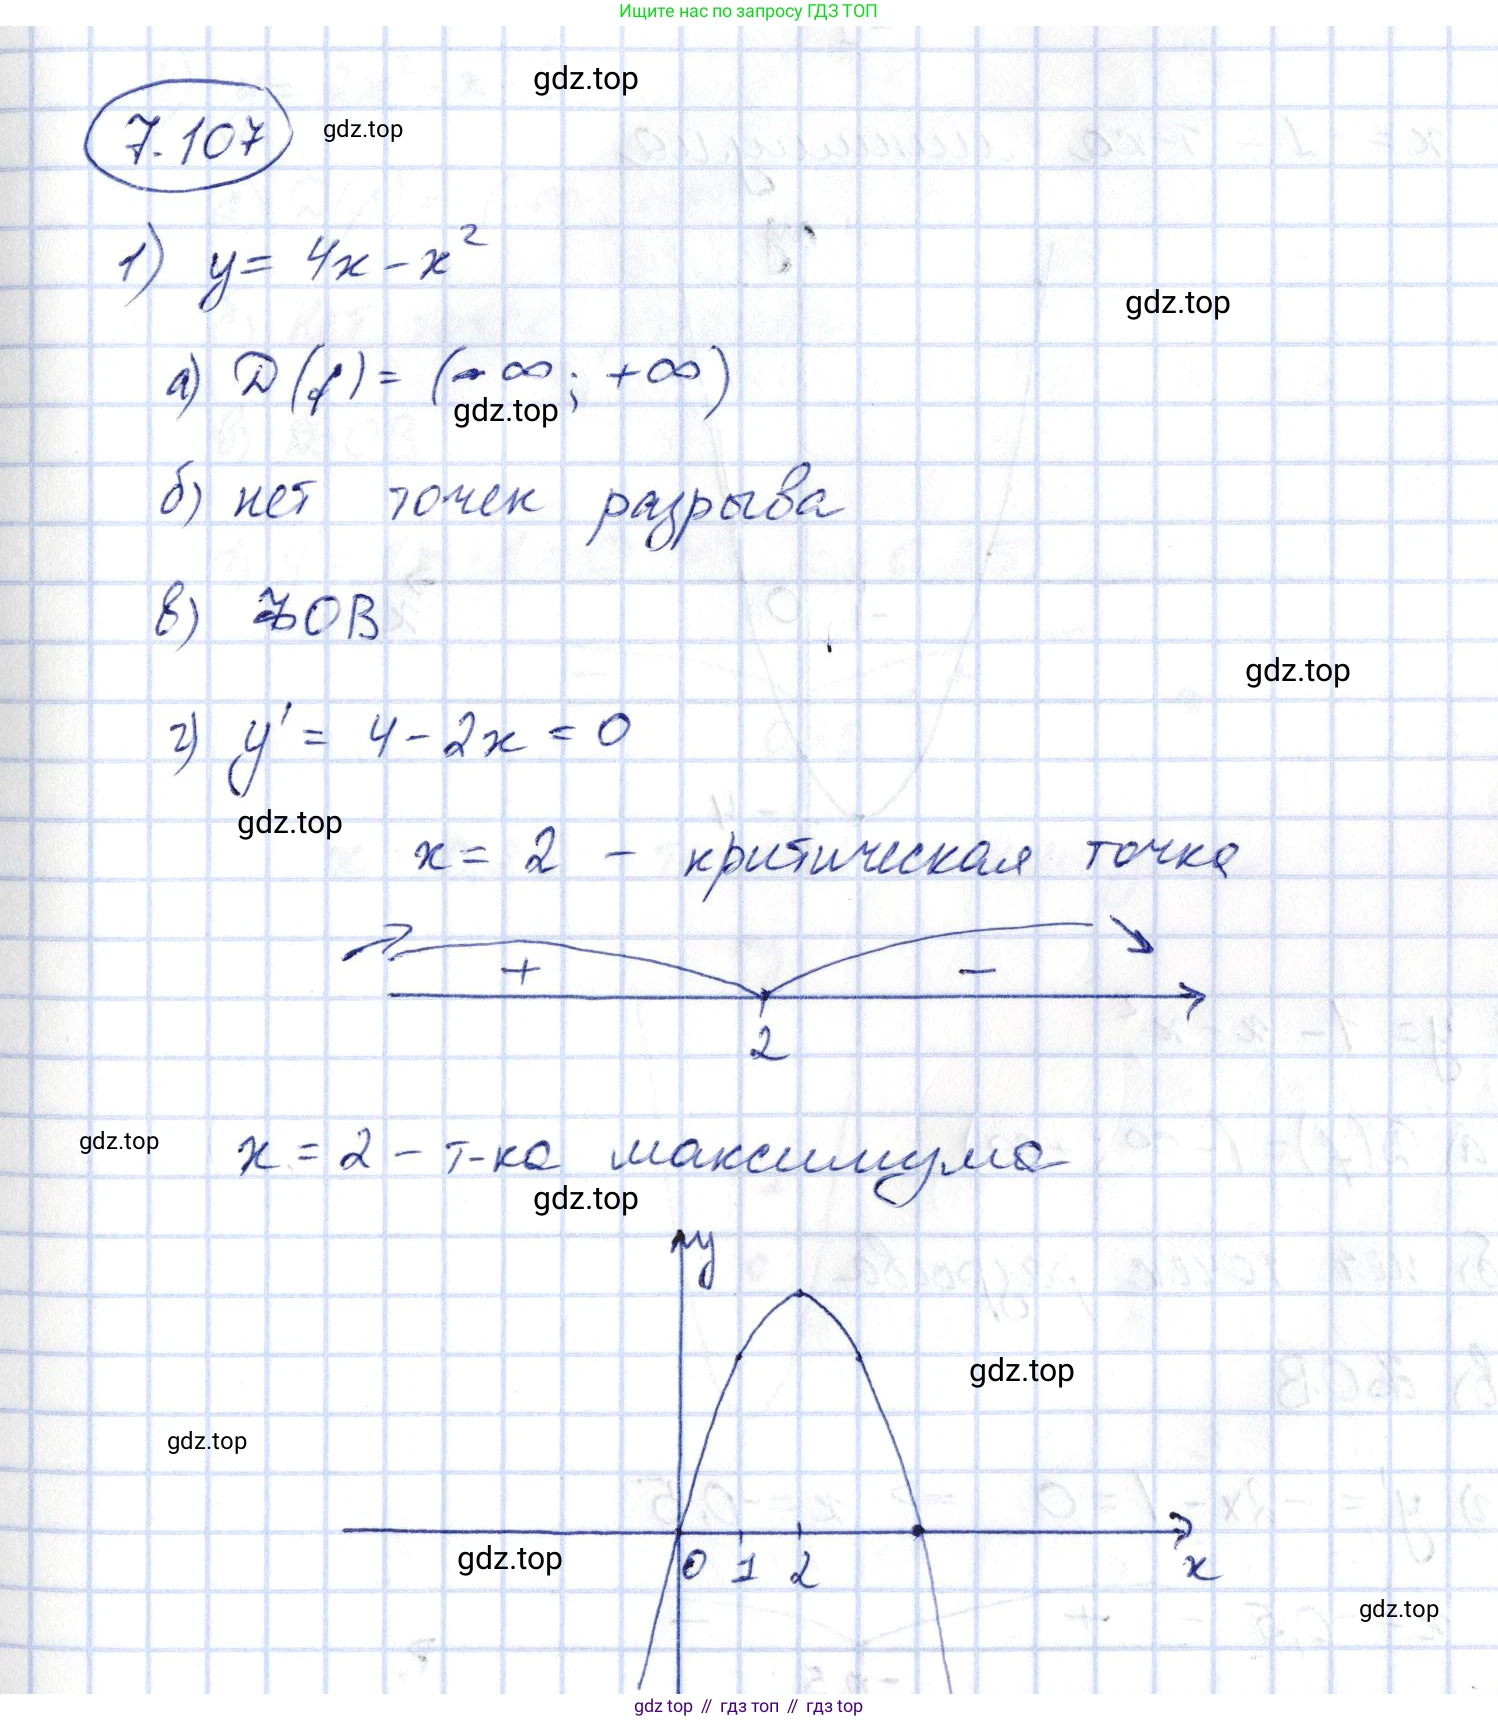 Ищите нас по запросу ГДЗ ТОП
gdz.top
7.107 gdz.top
1) y = 4x - x²
gdz.top
а) D(f) = (-∞; +∞)
gdz.top
б) нет точек разрыва
в) ОВ
gdz.top
г) y' = 4 - 2x = 0
gdz.top
x = 2 - критическая точка
+ -
2
gdz.top
x = 2 - т-ка максимума
gdz.top
y
gdz.top
gdz.top
0 1 2 x
gdz.top
gdz.top
gdz top // гдз топ // гдз top